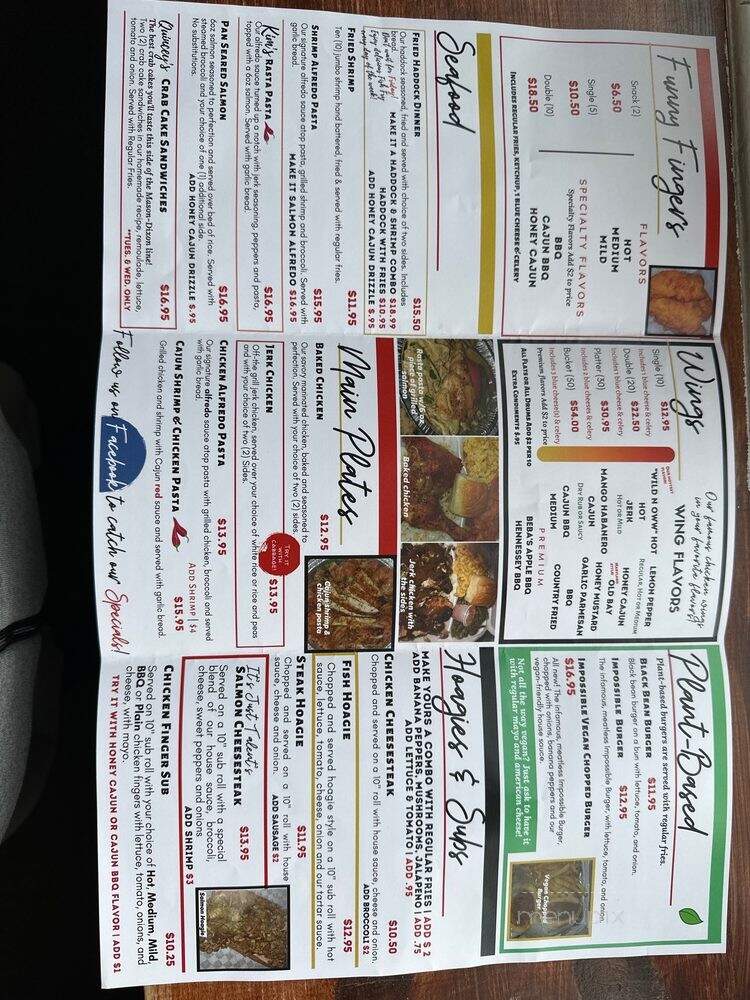 Funny Fingers
FLAVORS
Snack (2)
$6.50
Single (5)
$10.50
Double (10)
$18.50
HOT
MEDIUM
MILD
SPECIALTY FLAVORS
Specialty Flavors Add $2 to price
BBQ
CAJUN BBQ
HONEY CAJUN
INCLUDES REGULAR FRIES, KETCHUP, 1 BLUE CHEESE & CELERY
Seafood
FRIED HADDOCK DINNER $15.50
Our haddock seasoned, fried and served with choice of two sides. Includes
bread. MAKE IT A HADDOCK & SHRIMP COMBO $18.99
Don't wait for Friday! HADDOCK WITH FRIES $10.95
Enjoy delicious Fish Fry ADD HONEY CAJUN DRIZZLE $.95
every day of the week!
FRIED SHRIMP $11.95
Ten (10) jumbo shrimp hand battered, fried & served with regular fries.
SHRIMP ALFREDO PASTA $15.95
Our signature alfredo sauce atop pasta, grilled shrimp and broccoli. Served with
garlic bread. MAKE IT SALMON ALFREDO $16.95
Kim's RASTA PASTA $16.95
Our alfredo sauce turned up a notch with jerk seasoning, peppers and pasta,
topped with a 6oz salmon. Served with garlic bread.
PAN SEARED SALMON $16.95
6oz salmon seasoned to perfection and served over bed of rice. Served with
steamed broccoli and your choice of one (1) additional side.
No substitutions. ADD HONEY CAJUN DRIZZLE $.95
Quincey's CRAB CAKE SANDWICHES $16.95
The best crab cakes you'll taste this side of the Mason-Dixon line!
Two (2) crab cake sandwiches in our homemade recipe, remoulade, lettuce,
tomato and onion. Served with Regular Fries. **TUES. & WED. ONLY
Wings
Our famous chicken wings
in your favorite flavors!
WING FLAVORS
Single (10) $12.95
Includes 1 blue cheese & celery
Double (20) $22.50
Includes 1 blue cheese & celery
Platter (30) $30.95
Includes 2 blue cheeses & celery
Bucket (50) $54.00
Includes 3 blue cheese(s) & celery
Premium Flavors Add $2 to price
ALL FLATS OR ALL DRUMS ADD $2 PER 10
EXTRA CONDIMENTS $.95
"WILD N OWW" HOT
HOT
JERK
HOT OR MILD
MANGO HABANERO
CAJUN
DRY RUB OR SAUCY
CAJUN BBQ
MEDIUM
LEMON PEPPER
REGULAR, HOT OR MEDIUM
HONEY CAJUN
OLD BAY
HONEY MUSTARD
GARLIC PARMESAN
BBQ
COUNTRY FRIED
PREMIUM
BEBA'S APPLE BBQ
HENNESSEY BBQ
Rasta pasta w/6 oz.
piece of grilled
salmon
Baked chicken
Jerk chicken with
the sides
Main Plates
Cajun shrimp &
chicken pasta
BAKED CHICKEN $12.95
Our savory marinated chicken, baked and seasoned to
perfection. Served with your choice of two (2) sides.
TRY IT
WITH
CABBAGE!
JERK CHICKEN $13.95
Off-the grill jerk chicken, served over your choice of white rice or rice and peas
and with your choice of two (2) Sides.
CHICKEN ALFREDO PASTA $13.95
Our signature alfredo sauce atop pasta with grilled chicken, broccoli and served
with garlic bread. ADD SHRIMP | $4
CAJUN SHRIMP & CHICKEN PASTA $15.95
Grilled chicken and shrimp with Cajun red sauce and served with garlic bread.
Follow us on Facebook to catch our Specials!
Plant-Based
Plant-based burgers are served with regular fries.
BLACK BEAN BURGER $11.95
Black bean burger on a bun with lettuce, tomato, and onion.
IMPOSSIBLE BURGER $12.95
The infamous, meatless Impossible Burger, with lettuce, tomato, and onion.
IMPOSSIBLE VEGAN CHOPPED BURGER
$16.95
All new! The infamous, meatless Impossible Burger,
chopped with onions, banana peppers and our
vegan-friendly house sauce.
Not all the way vegan? Just ask to have it
with regular mayo and american cheese!
Vegan Chopped
Burger
Hoagies & Subs
MAKE YOURS A COMBO WITH REGULAR FRIES | ADD $ 2
ADD BANANA PEPPERS, MUSHROOMS, JALAPENO | ADD .75
ADD LETTUCE & TOMATO | ADD .95
CHICKEN CHEESESTEAK $10.50
Chopped and served on a 10" roll with house sauce, cheese and onion.
ADD BROCCOLI $2
FISH HOAGIE $12.95
Chopped and served hoagie style on a 10" sub roll with hot
sauce, lettuce, tomato, cheese, onion and our tartar sauce.
STEAK HOAGIE $11.95
Chopped and served on a 10" roll with house
sauce, cheese and onion. ADD SAUSAGE $2
SALMON CHEESESTEAK $13.95
Served on a 10" sub roll with a special
blend of our house sauce, broccoli,
cheese, sweet peppers and onions.
ADD SHRIMP $3
Salmon Hoagie
CHICKEN FINGER SUB $10.25
Served on 10" sub roll with your choice of Hot, Medium, Mild,
BBQ or Plain chicken fingers with lettuce, tomato, onions, and
cheese, with mayo.
TRY IT WITH HONEY CAJUN OR CAJUN BBQ FLAVOR | ADD $1